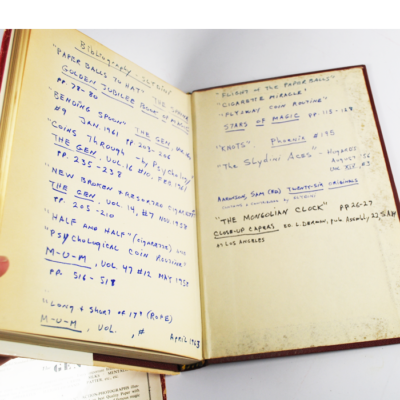 Bibliography - Slydini
"PAPER BALLS TO HAT" THE
GOLDEN JUBILEE BOOK OF MAGIC
PP. 78-80
"BENDING SPOON" THE GEN
#9 JAN. 1961 PP. 203-206
"COINS THROUGH - by Psychology"
THE GEN, VOL. 16 #10, FEB 1961
PP. 235-238
"NEW BROKEN & RESTORED CIGARETTE"
THE GEN, VOL. 14, #7 NOV. 1958
PP. 205-210
"HALF AND HALF" (cigarette) and
"PSYCHOLOGICAL COIN ROUTINE"
M-U-M, VOL. 47 #12 MAY 1958
PP. 516-518
"LONG & SHORT OF IT" (ROPE)
M-U-M, VOL. , # APRIL 1963
"FLIGHT OF THE PAPER BALLS"
"CIGARETTE MIRACLE"
COIN ROUTINE"
STARS OF MAGIC PP. 118-128
"KNOTS" Phoenix #195
"The Slydini Aces" - Hugards
VOL XIV, #3
SAM (ED) TWENTY-SIX ORIGINALS
"THE MONGOLIAN CLOCK" PP 26-27
CLOSE-UP CAPERS
LOS ANGELES